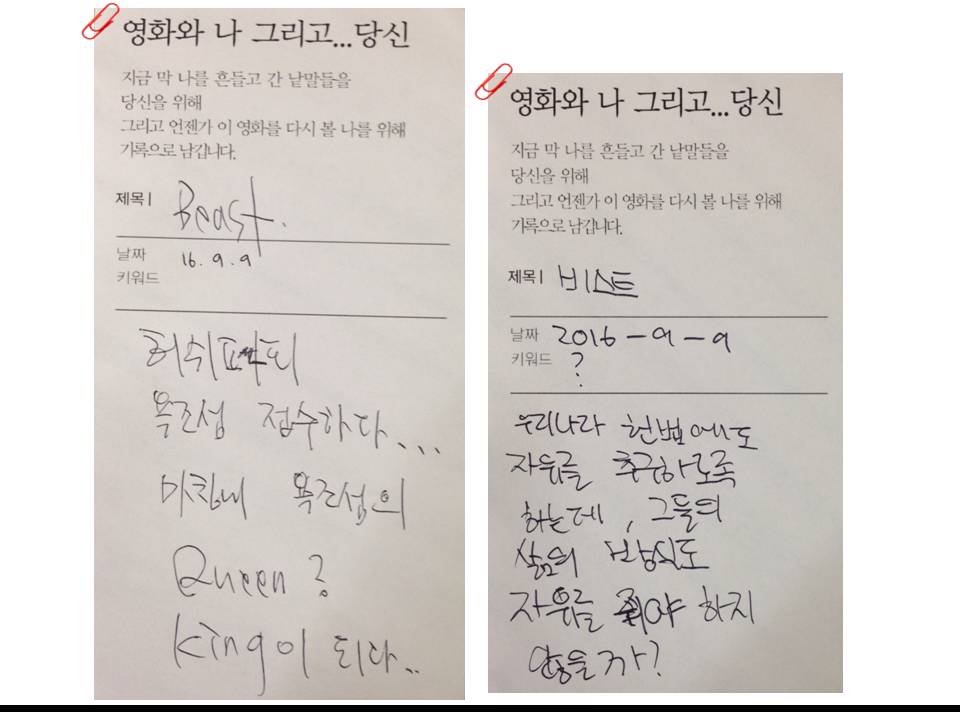 영화와 나 그리고...당신
지금 막 나를 흔들고 간 낱말들을
당신을 위해
그리고 언젠가 이 영화를 다시 볼 나를 위해
기록으로 남깁니다.
제목 | Beast.
날짜 16. 9. 9
키워드
허쉬파피
욕조섬 접수하다...
마침내 욕조섬의
Queen?
King이 되다..
영화와 나 그리고...당신
지금 막 나를 흔들고 간 낱말들을
당신을 위해
그리고 언젠가 이 영화를 다시 볼 나를 위해
기록으로 남깁니다.
제목 | 비스트
날짜 2016-9-9
키워드 ?
우리나라 헌법에도
자유를 추구하도록
하는데, 그들의
삶의 방식도
자유를 줘야 하지
않을까?